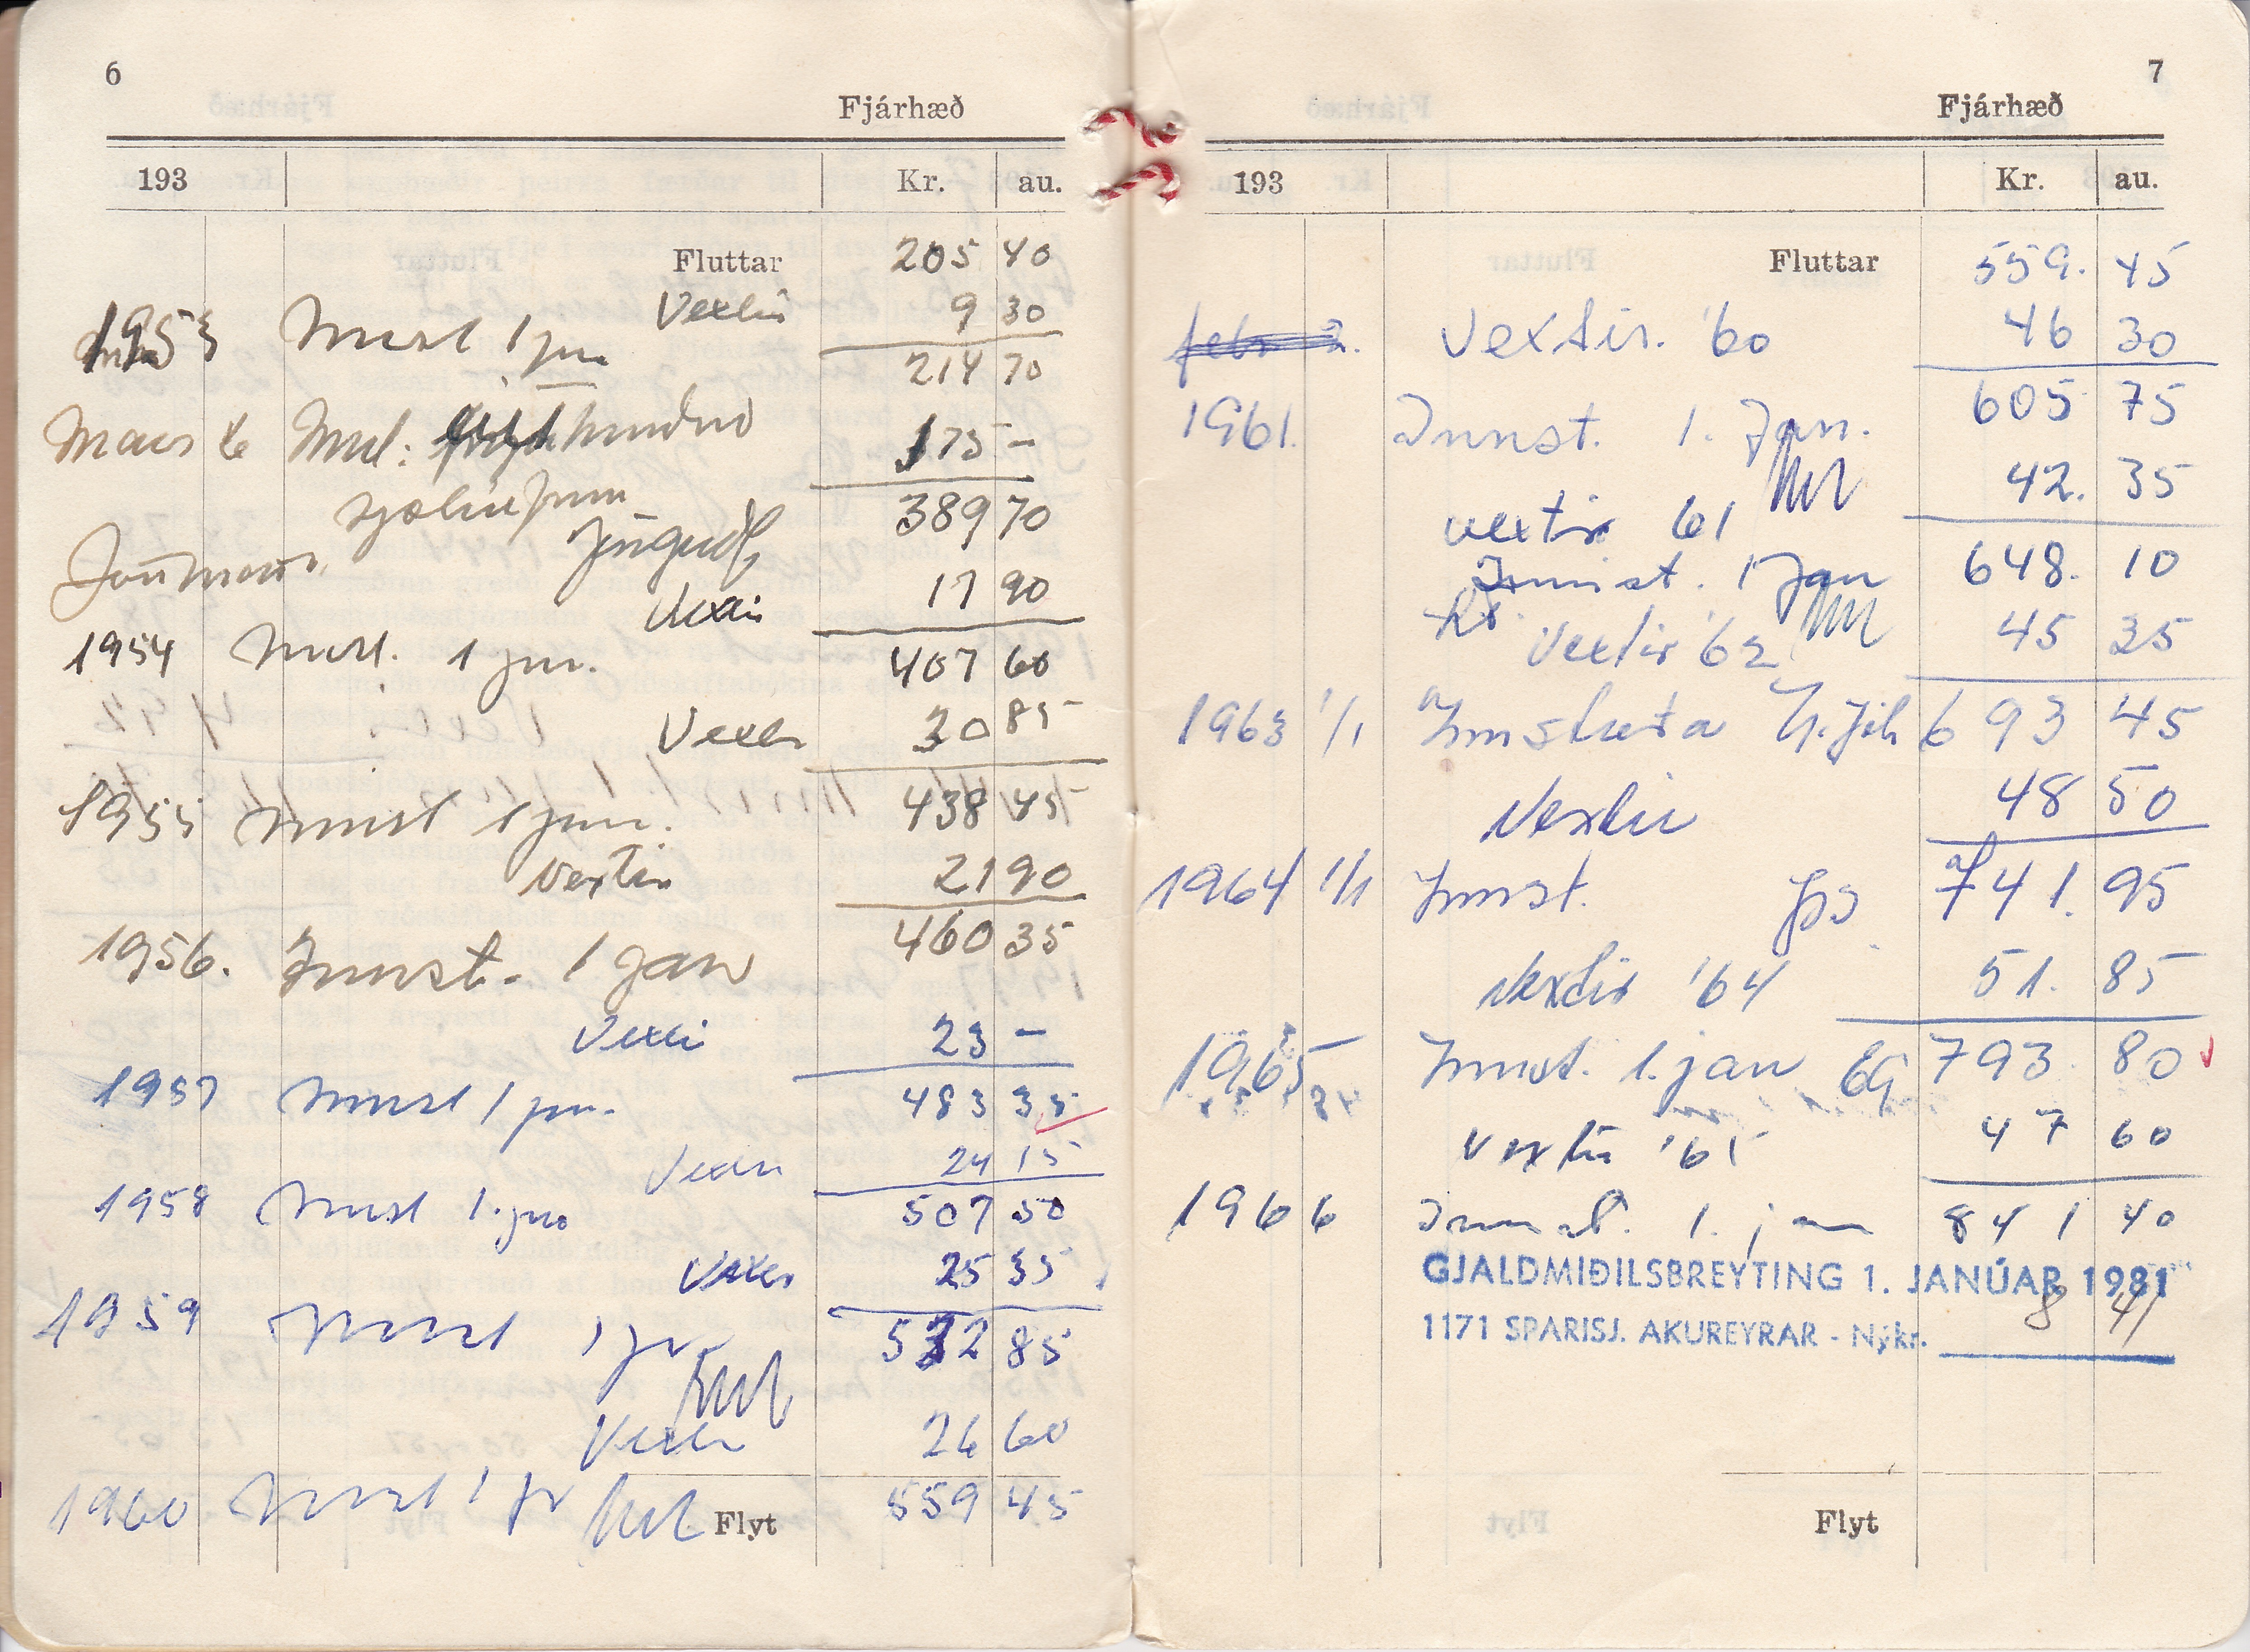 6
Fjárhæð
193 Kr. au.
Fluttar 205 40
Vextir 9 30
1953 Innst 1 jan 214 70
Mars 6 Innl: hundrað 175 –
sjötíu fimm 389 70
Vextir 17 90
1954 Innst. 1 jan. 407 60
Vextir 30 85
1955 Innst 1 jan. 438 45
Vextir 21 90
1956. Innst. 1 jan 460 35
Vextir 23 –
1957 Innst 1 jan. 483 35
Vextir 24 15
1958 Innst 1. jan 507 50
Vextir 25 35
1959 Innst 1 jan 532 85
Vextir 26 60
1960 Innst 1 jan Flyt 559 45
7
Fjárhæð
193 Kr. au.
Fluttar 559. 45
febr 2. Vextir. '60 46 30
1961. Innst. 1. Jan. 605 75
vextir 61 42. 35
Innist. 1 Jan 648. 10
Vextir '62 45 35
1963 1/1 Innstæða 693 45
Vextir 48 50
1964 1/1 Innst. 741. 95
Vextir '64 51. 85
1965 Innst. 1. jan EG 793 80
Vextir '65 47 60
1966 Innst. 1. jan 841 40
GJALDMIÐILSBREYTING 1. JANÚAR 1981
1171 SPARISJ. AKUREYRAR - Nýkr. 8 41
Flyt